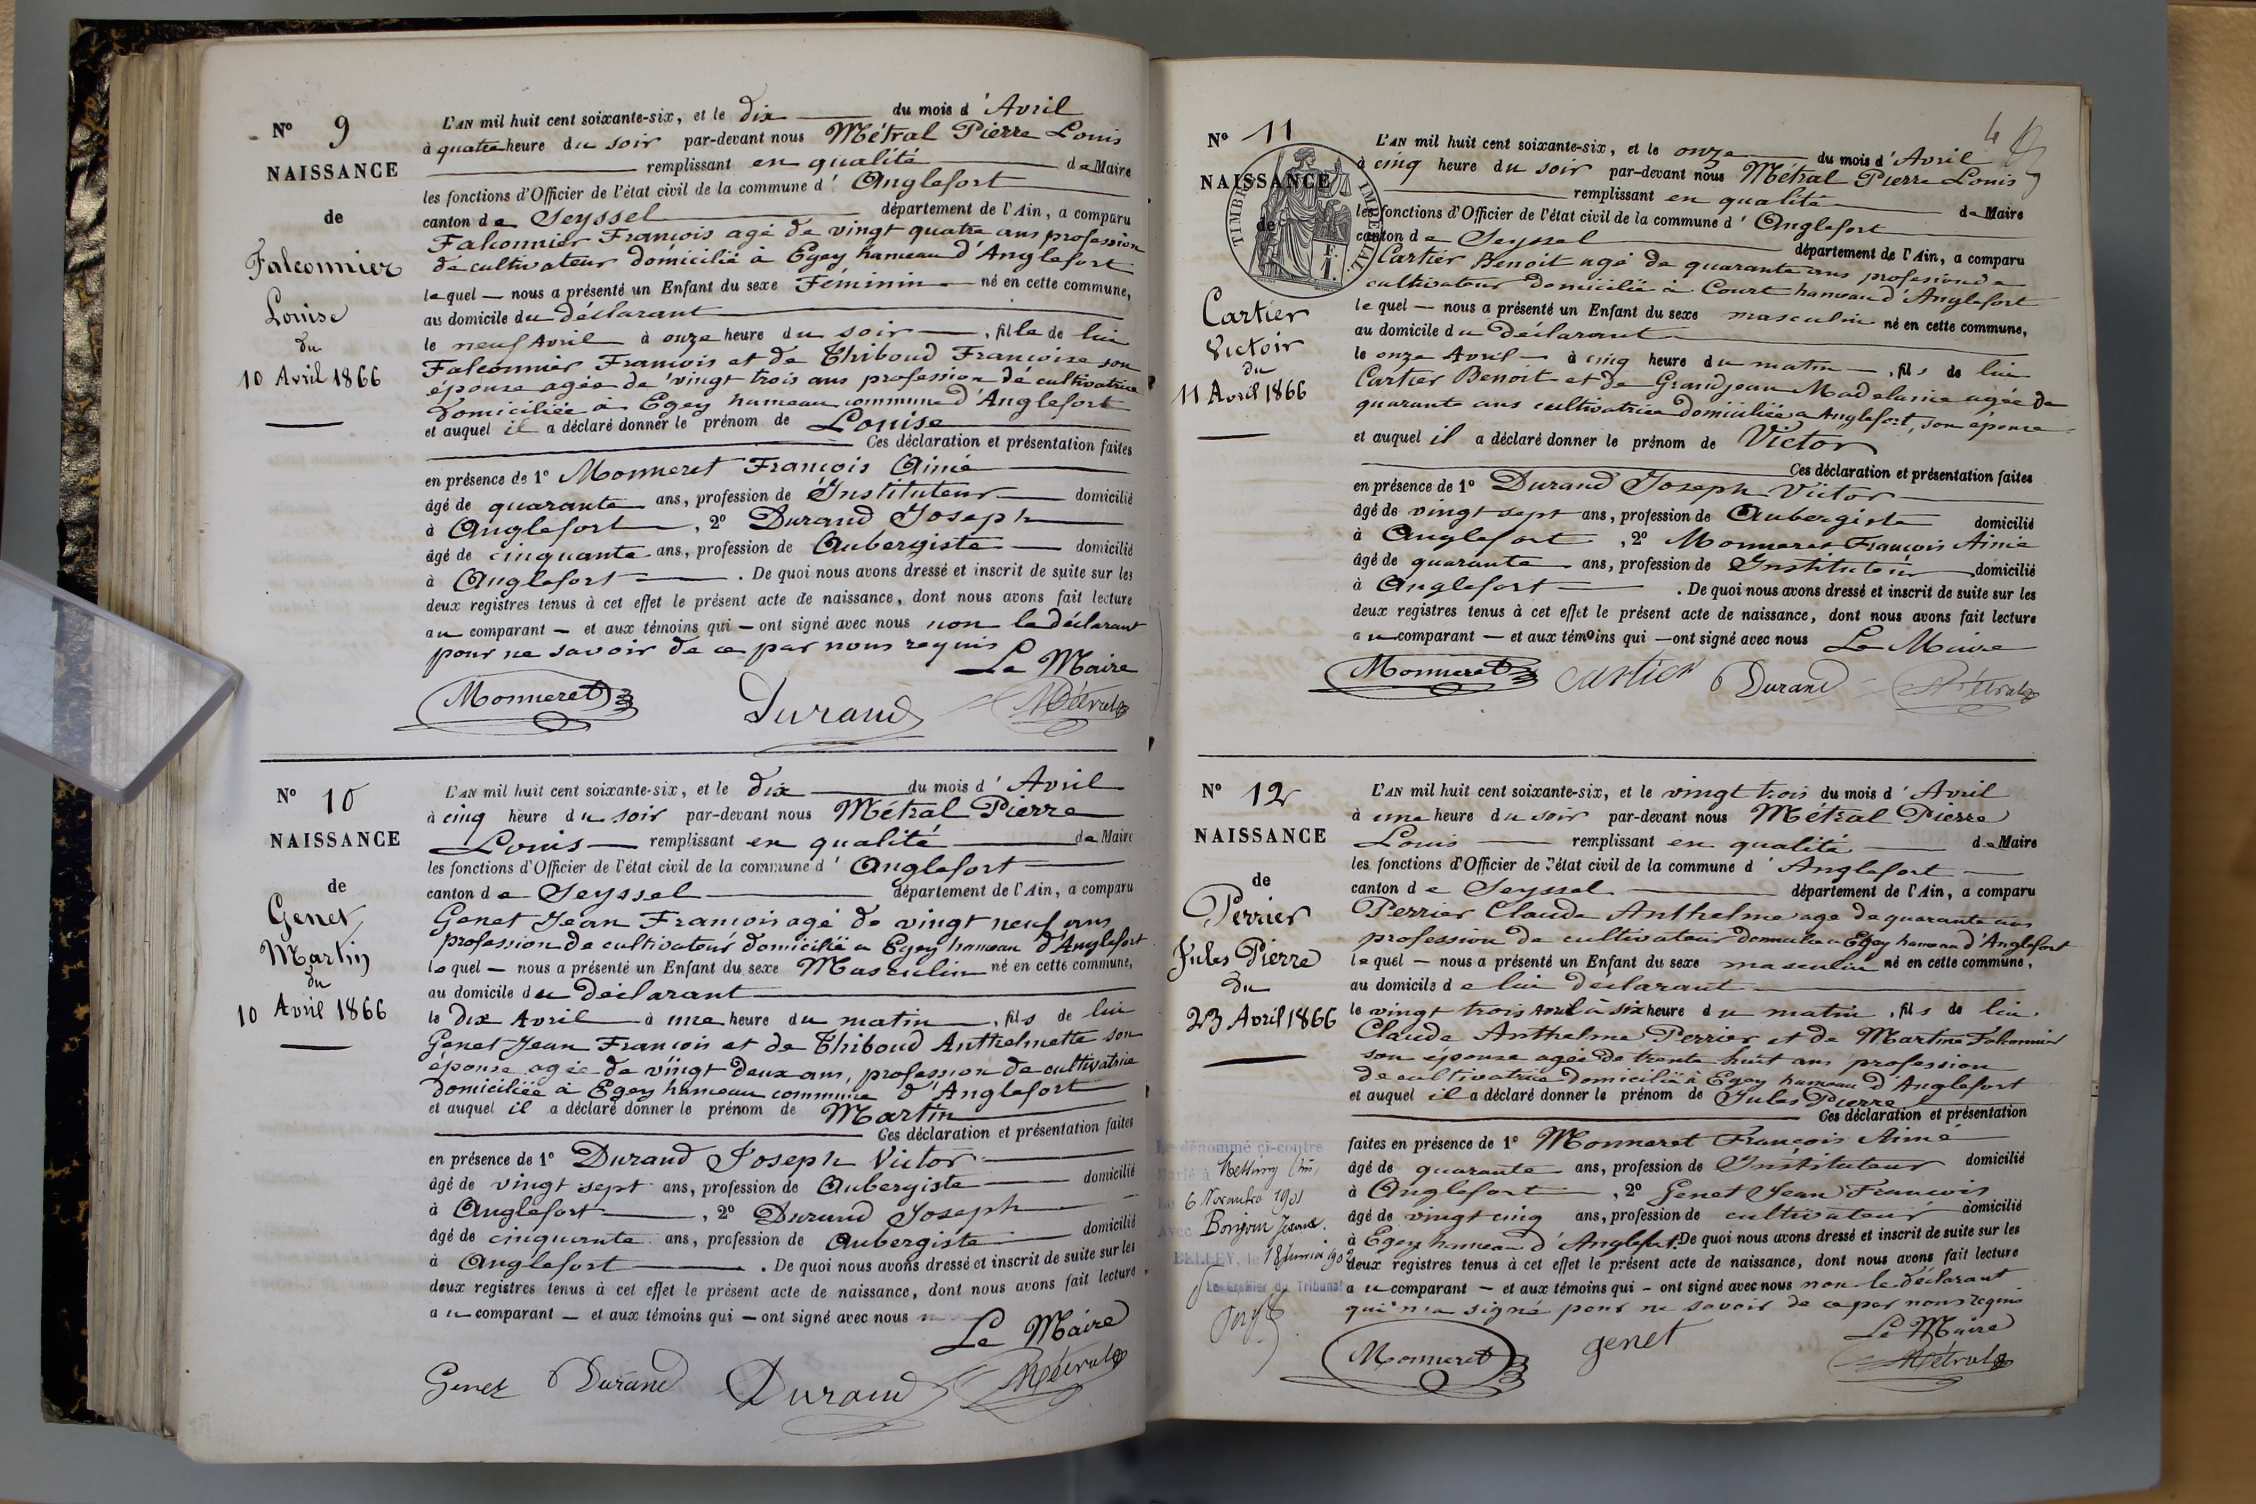 N° 9
NAISSANCE
de
Falconnier
Louise
du
10 Avril 1866
L'AN mil huit cent soixante-six, et le dix du mois d'Avril
à quatre heure du soir par-devant nous Métral Pierre Louis
remplissant en qualité de Maire
les fonctions d'Officier de l'état civil de la commune d'Anglefort
canton de Seyssel département de l'Ain, a comparu
Falconnier François agé de vingt quatre ans profession
de cultivateur domicilié à Egey hameau d'Anglefort
lequel — nous a présenté un Enfant du sexe Féminin né en cette commune,
au domicile du déclarant
le neuf Avril à onze heure du soir, fille de lui
Falconnier François et de Thiboud Françoise son
épouse agée de vingt trois ans profession de cultivatrice
domiciliée à Egey hameau commune d'Anglefort
et auquel il a déclaré donner le prénom de Louise
Ces déclaration et présentation faites
en présence de 1° Monneret François Aimé
âgé de quarante ans, profession de Instituteur domicilié
à Anglefort, 2° Durand Joseph
âgé de cinquante ans, profession de Aubergiste domicilié
à Anglefort. De quoi nous avons dressé et inscrit de suite sur les
deux registres tenus à cet effet le présent acte de naissance, dont nous avons fait lecture
au comparant — et aux témoins qui — ont signé avec nous non le déclarant
pour ne savoir de ce par nous requis
Le Maire
Monneret Durand Métral
N° 10
NAISSANCE
de
Genet
Martin
du
10 Avril 1866
L'AN mil huit cent soixante-six, et le dix du mois d'Avril
à cinq heure du soir par-devant nous Métral Pierre
Louis remplissant en qualité de Maire
les fonctions d'Officier de l'état civil de la commune d'Anglefort
canton de Seyssel département de l'Ain, a comparu
Genet Jean François agé de vingt neuf ans
profession de cultivateur domicilié a Egey hameau d'Anglefort
lequel — nous a présenté un Enfant du sexe Masculin né en cette commune,
au domicile du déclarant
le dix Avril à une heure du matin, fils de lui
Genet Jean François et de Thiboud Anthelmette son
épouse agée de vingt deux ans, profession de cultivatrice
domiciliée à Egey hameau commune d'Anglefort
et auquel il a déclaré donner le prénom de Martin
Ces déclaration et présentation faites
en présence de 1° Durand Joseph Victor
âgé de vingt sept ans, profession de Aubergiste domicilié
à Anglefort, 2° Durand Joseph
âgé de cinquante ans, profession de Aubergiste domicilié
à Anglefort. De quoi nous avons dressé et inscrit de suite sur les
deux registres tenus à cet effet le présent acte de naissance, dont nous avons fait lecture
au comparant — et aux témoins qui — ont signé avec nous
Le Maire
Genet Durand Durand Métral
4
N° 11
NAISSANCE
de
TIMBRE IMPERIAL
Cartier
Victoir
du
11 Avril 1866
L'AN mil huit cent soixante-six, et le onze du mois d'Avril
à cinq heure du soir par-devant nous Métral Pierre Louis
remplissant en qualité de Maire
les fonctions d'Officier de l'état civil de la commune d'Anglefort
canton de Seyssel département de l'Ain, a comparu
Cartier Benoit agé de quarante ans profession de
cultivateur domicilié à Court hameau d'Anglefort
lequel — nous a présenté un Enfant du sexe masculin né en cette commune,
au domicile du déclarant
le onze Avril à cinq heure du matin, fils de lui
Cartier Benoit et de Grandjean Madelaine agée de
quarante ans cultivatrice domiciliée a Anglefort, son épouse
et auquel il a déclaré donner le prénom de Victor
Ces déclaration et présentation faites
en présence de 1° Durand Joseph Victor
âgé de vingt sept ans, profession de Aubergiste domicilié
à Anglefort, 2° Monneret François Aimé
âgé de quarante ans, profession de Instituteur domicilié
à Anglefort. De quoi nous avons dressé et inscrit de suite sur les
deux registres tenus à cet effet le présent acte de naissance, dont nous avons fait lecture
au comparant — et aux témoins qui — ont signé avec nous Le Maire
Monneret Cartier Durand Métral
N° 12
NAISSANCE
de
Perrier
Jules Pierre
du
23 Avril 1866
L'AN mil huit cent soixante-six, et le vingt trois du mois d'Avril
à une heure du soir par-devant nous Métral Pierre
Louis remplissant en qualité de Maire
les fonctions d'Officier de l'état civil de la commune d'Anglefort
canton de Seyssel département de l'Ain, a comparu
Perrier Claude Anthelme age de quarante ans
profession de cultivateur domicilié a Egey hameau d'Anglefort
lequel — nous a présenté un Enfant du sexe masculin né en cette commune,
au domicile de lui déclarant
le vingt trois Avril à six heure du matin, fils de lui
Claude Anthelme Perrier et de Martine Falconnier
son épouse agée de trente huit ans profession
de cultivatrice domiciliée à Egey hameau d'Anglefort
et auquel il a déclaré donner le prénom de Jules Pierre
Ces déclaration et présentation
faites en présence de 1° Monneret François Aimé
âgé de quarante ans, profession de Instituteur domicilié
à Anglefort, 2° Genet Jean François
âgé de vingt cinq ans, profession de cultivateur domicilié
à Egey hameau d'Anglefort. De quoi nous avons dressé et inscrit de suite sur les
deux registres tenus à cet effet le présent acte de naissance, dont nous avons fait lecture
au comparant — et aux témoins qui — ont signé avec nous non le déclarant
qui n'a signé pour ne savoir de ce par nous requis
Le Maire
Monneret genet Métral
Le dénommé ci-contre
marié à
le 6 Novembre 1901
Avec Bonjour
BELLEY, le 18
Le Greffier du Tribunal